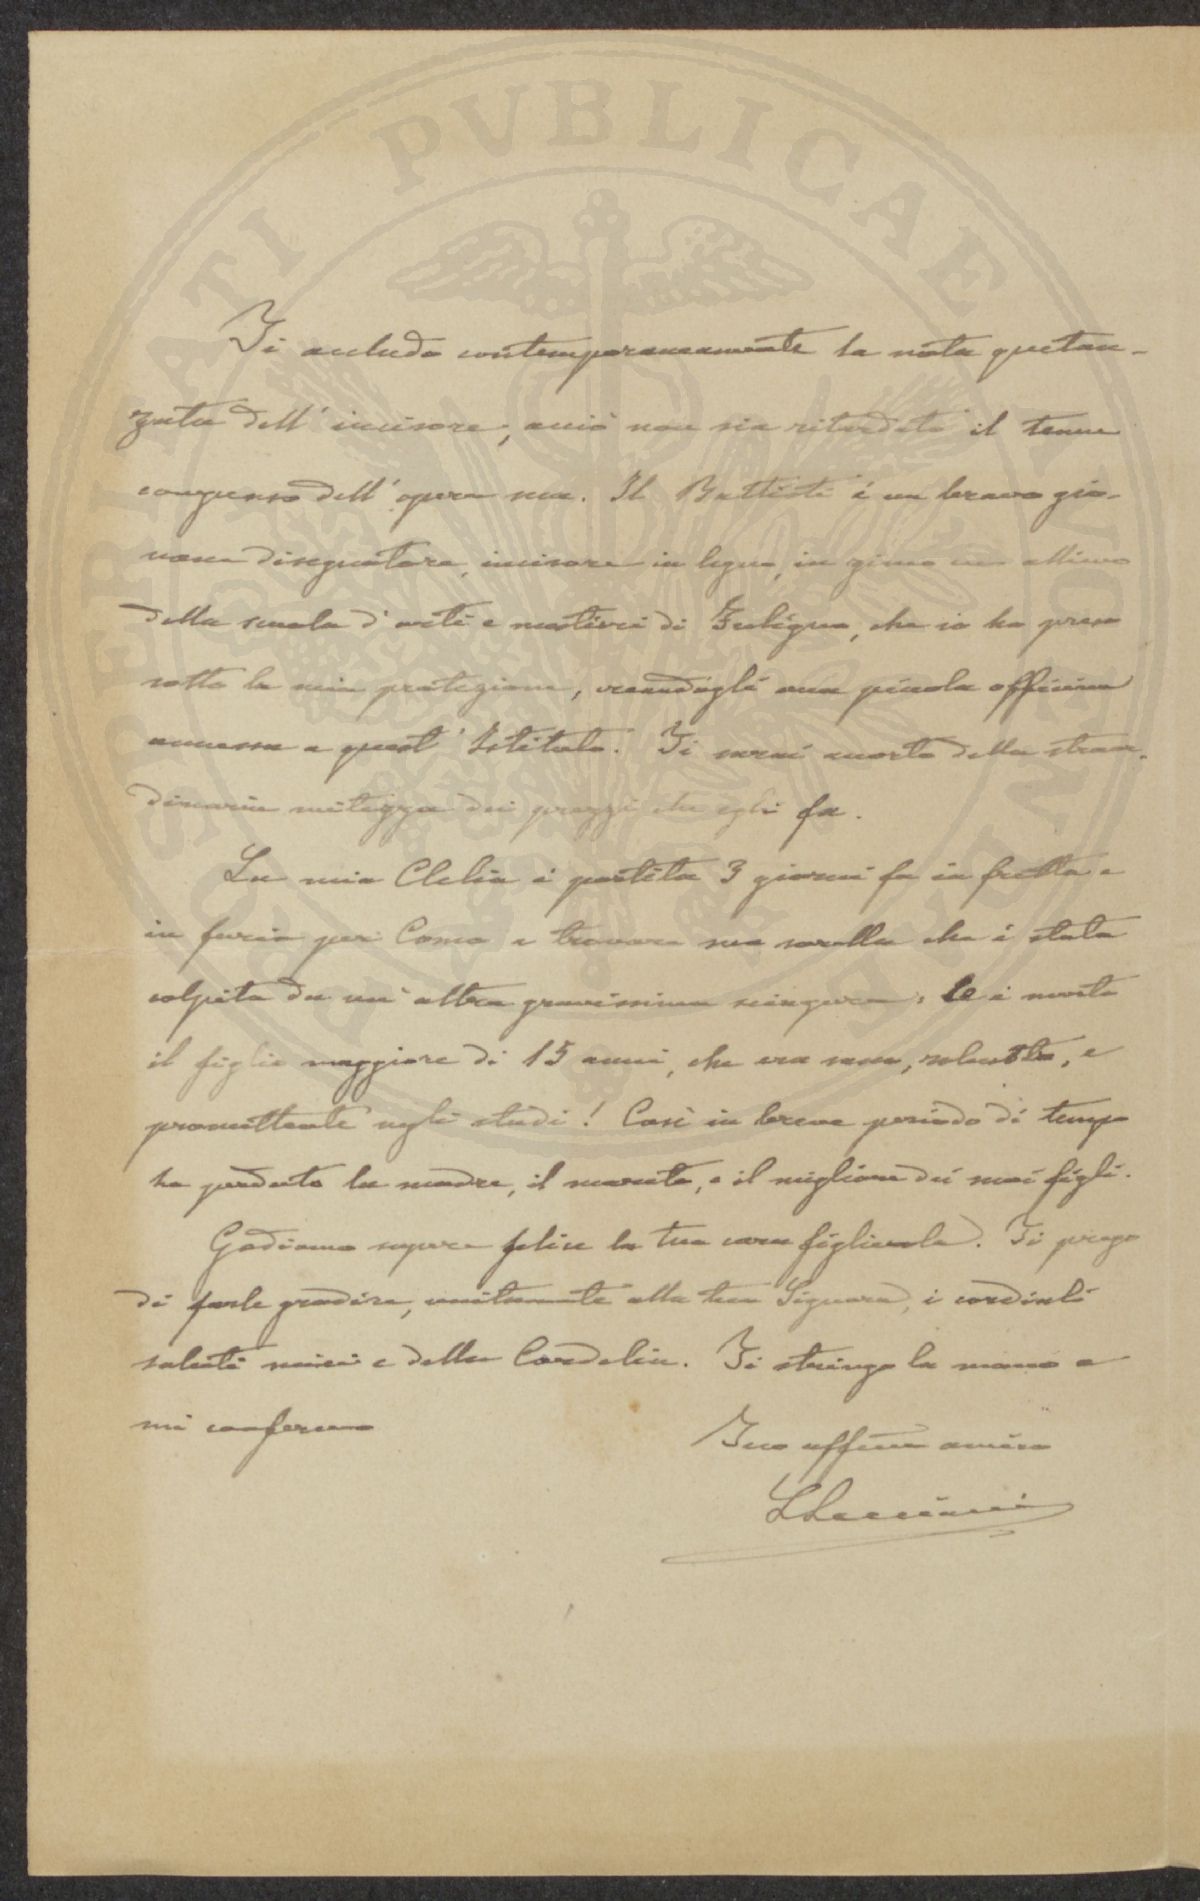 Ti accludo contemporaneamente la nota quetan-
zata dell'incisore, acciò non sia ritardato il tenue
compenso dell'opera sua. Il Battisti è un bravo gio-
vane disegnatore, incisore in legno, in zinco ex allievo
della scuola d'arti e mestieri di Fuligno, che io ho preso
sotto la mia protezione, creandogli una piccola officina
annessa a quest'Istituto. Ti sarai accorto della straor-
dinaria mitezza dei prezzi che egli fa.
La mia Clelia è partita 3 giorni fa in fretta e
in furia per Como a trovare sua sorella che è stata
colpita da un'altra gravissima sciagura: le è morto
il figlio maggiore di 15 anni, che era sano, robusto, e
promettente negli studi! Così in breve periodo di tempo
ha perduto la madre, il marito, e il migliore dei suoi figli.
Godiamo sapere felice la tua cara figliuola. Ti prego
di farle gradire, unitamente alla tua Signora, i cordiali
saluti miei e della Cordelia. Ti stringo la mano e
mi confermo
Tuo affmo amico
LLuciani
PROSPERITATI PVBLICAE